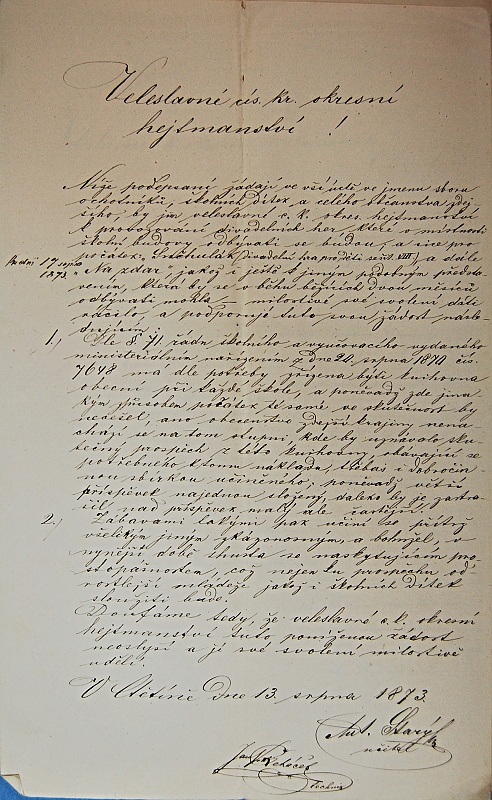 Veleslavné cís. kr. okresní
hejtmanství !
Níže podepsaní žádají ve vší úctě ve jmenu sboru
ochotníků, školních dítek a celého občanstva zdej-
šího, by jim veleslavné c. k. okres. hejtmanství
k provozování divadelních her, které v místnosti
školní budovy odbývati se budou, a sice pro
Pro den 17. srpna
1873.
počátek: „Strakulák" (Divadelní hra pro děti seš. VIII) a dále
„Na zdar" jakož i ještě k jiným podobným předsta-
vením, která by se v běhu běžících dvou měsíců
odbývati mohla – milostivé své svolení dáti
ráčilo, a podporují tuto svou žádost násle-
dujícím:
1.) Dle §. 71. řádu školního a vyučovacího vydaného
ministeriálním nařízením z dne 20. srpna 1870 čís.
7648 má dle potřeby zřízena býti knihovna
obecní při každé škole, a poněvadž zde jina-
kým způsobem počátek té samé ve skutečnost by
nevešel, ano obecenstvo zdejší krajiny nena-
chází se na tom stupni, kde by uznávalo sku-
tečný prospěch z této knihovny, obávajíc se
potřebného k tomu nákladu, třebas i dobročin-
nou sbírkou učiněného; poněvadž větší
příspěvek najednou složený, daleko by je zastra-
šil nad příspěvek malý ale častější.
2.) Zábavami takými pak učiní se přítrž
všelikým jiným zkázonosným, a bohužel, v
nynější době zhusta se naskytujícím pro-
stopášnostem, což nejen ku prospěchu od-
rostlejší mládeže jakož i školních dítek
sloužiti bude.
Doufáme tedy, že veleslavné c. k. okresní
hejtmanství tuto poníženou žádost
neoslyší a jí své svolení milostivě
udělí.
V dne 13. srpna 1873.
Ant. Starý
učitel
Jan